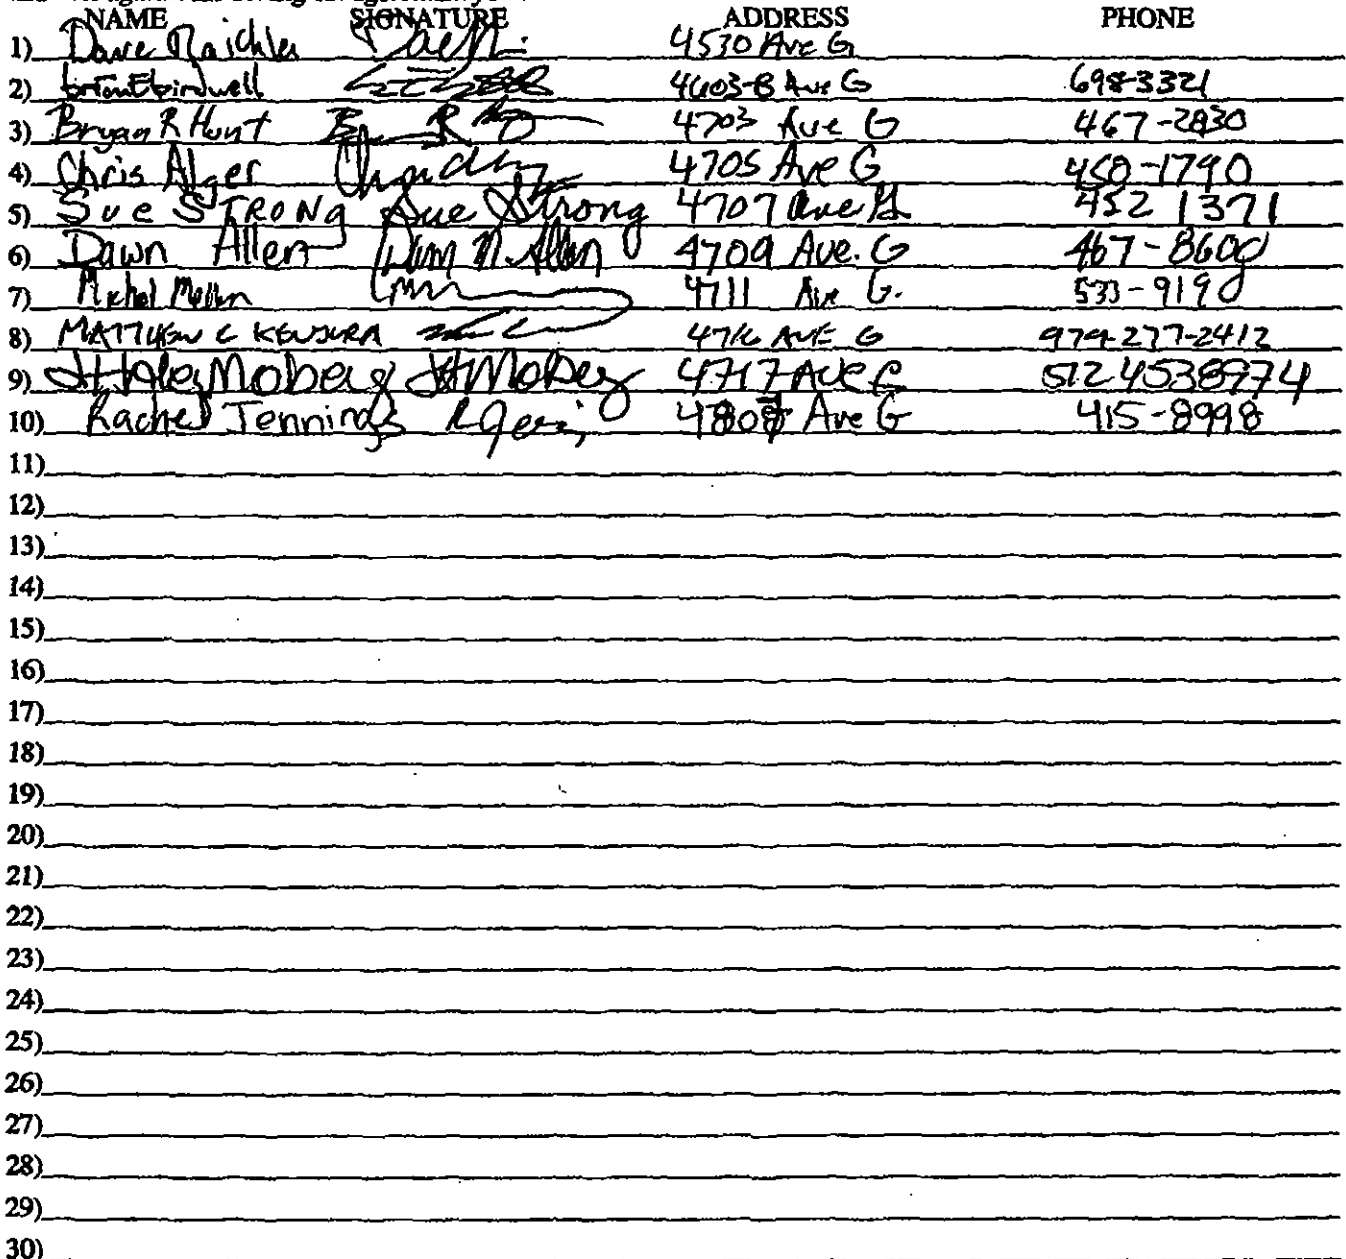 NAME SIGNATURE ADDRESS PHONE
1) Dave 4530 Ave G
2) 4603-B Ave G 698-3321
3) Bryan R Hunt 4703 Ave G 467-2830
4) Chris Alger 4705 Ave G 450-1790
5) Sue STRONG Sue Strong 4707 Ave G 452 1371
6) Dawn Allen Dawn M. Allen 4709 Ave. G 467-8600
7) 4711 Ave G. 533-9190
8) MATTHEW C 4716 AVE G 979-277-2412
9) Moberg Moberg 4717 Ave G 512 4538974
10) Rachel Jennings Ave G 415-8998
11)
12)
13)
14)
15)
16)
17)
18)
19)
20)
21)
22)
23)
24)
25)
26)
27)
28)
29)
30)